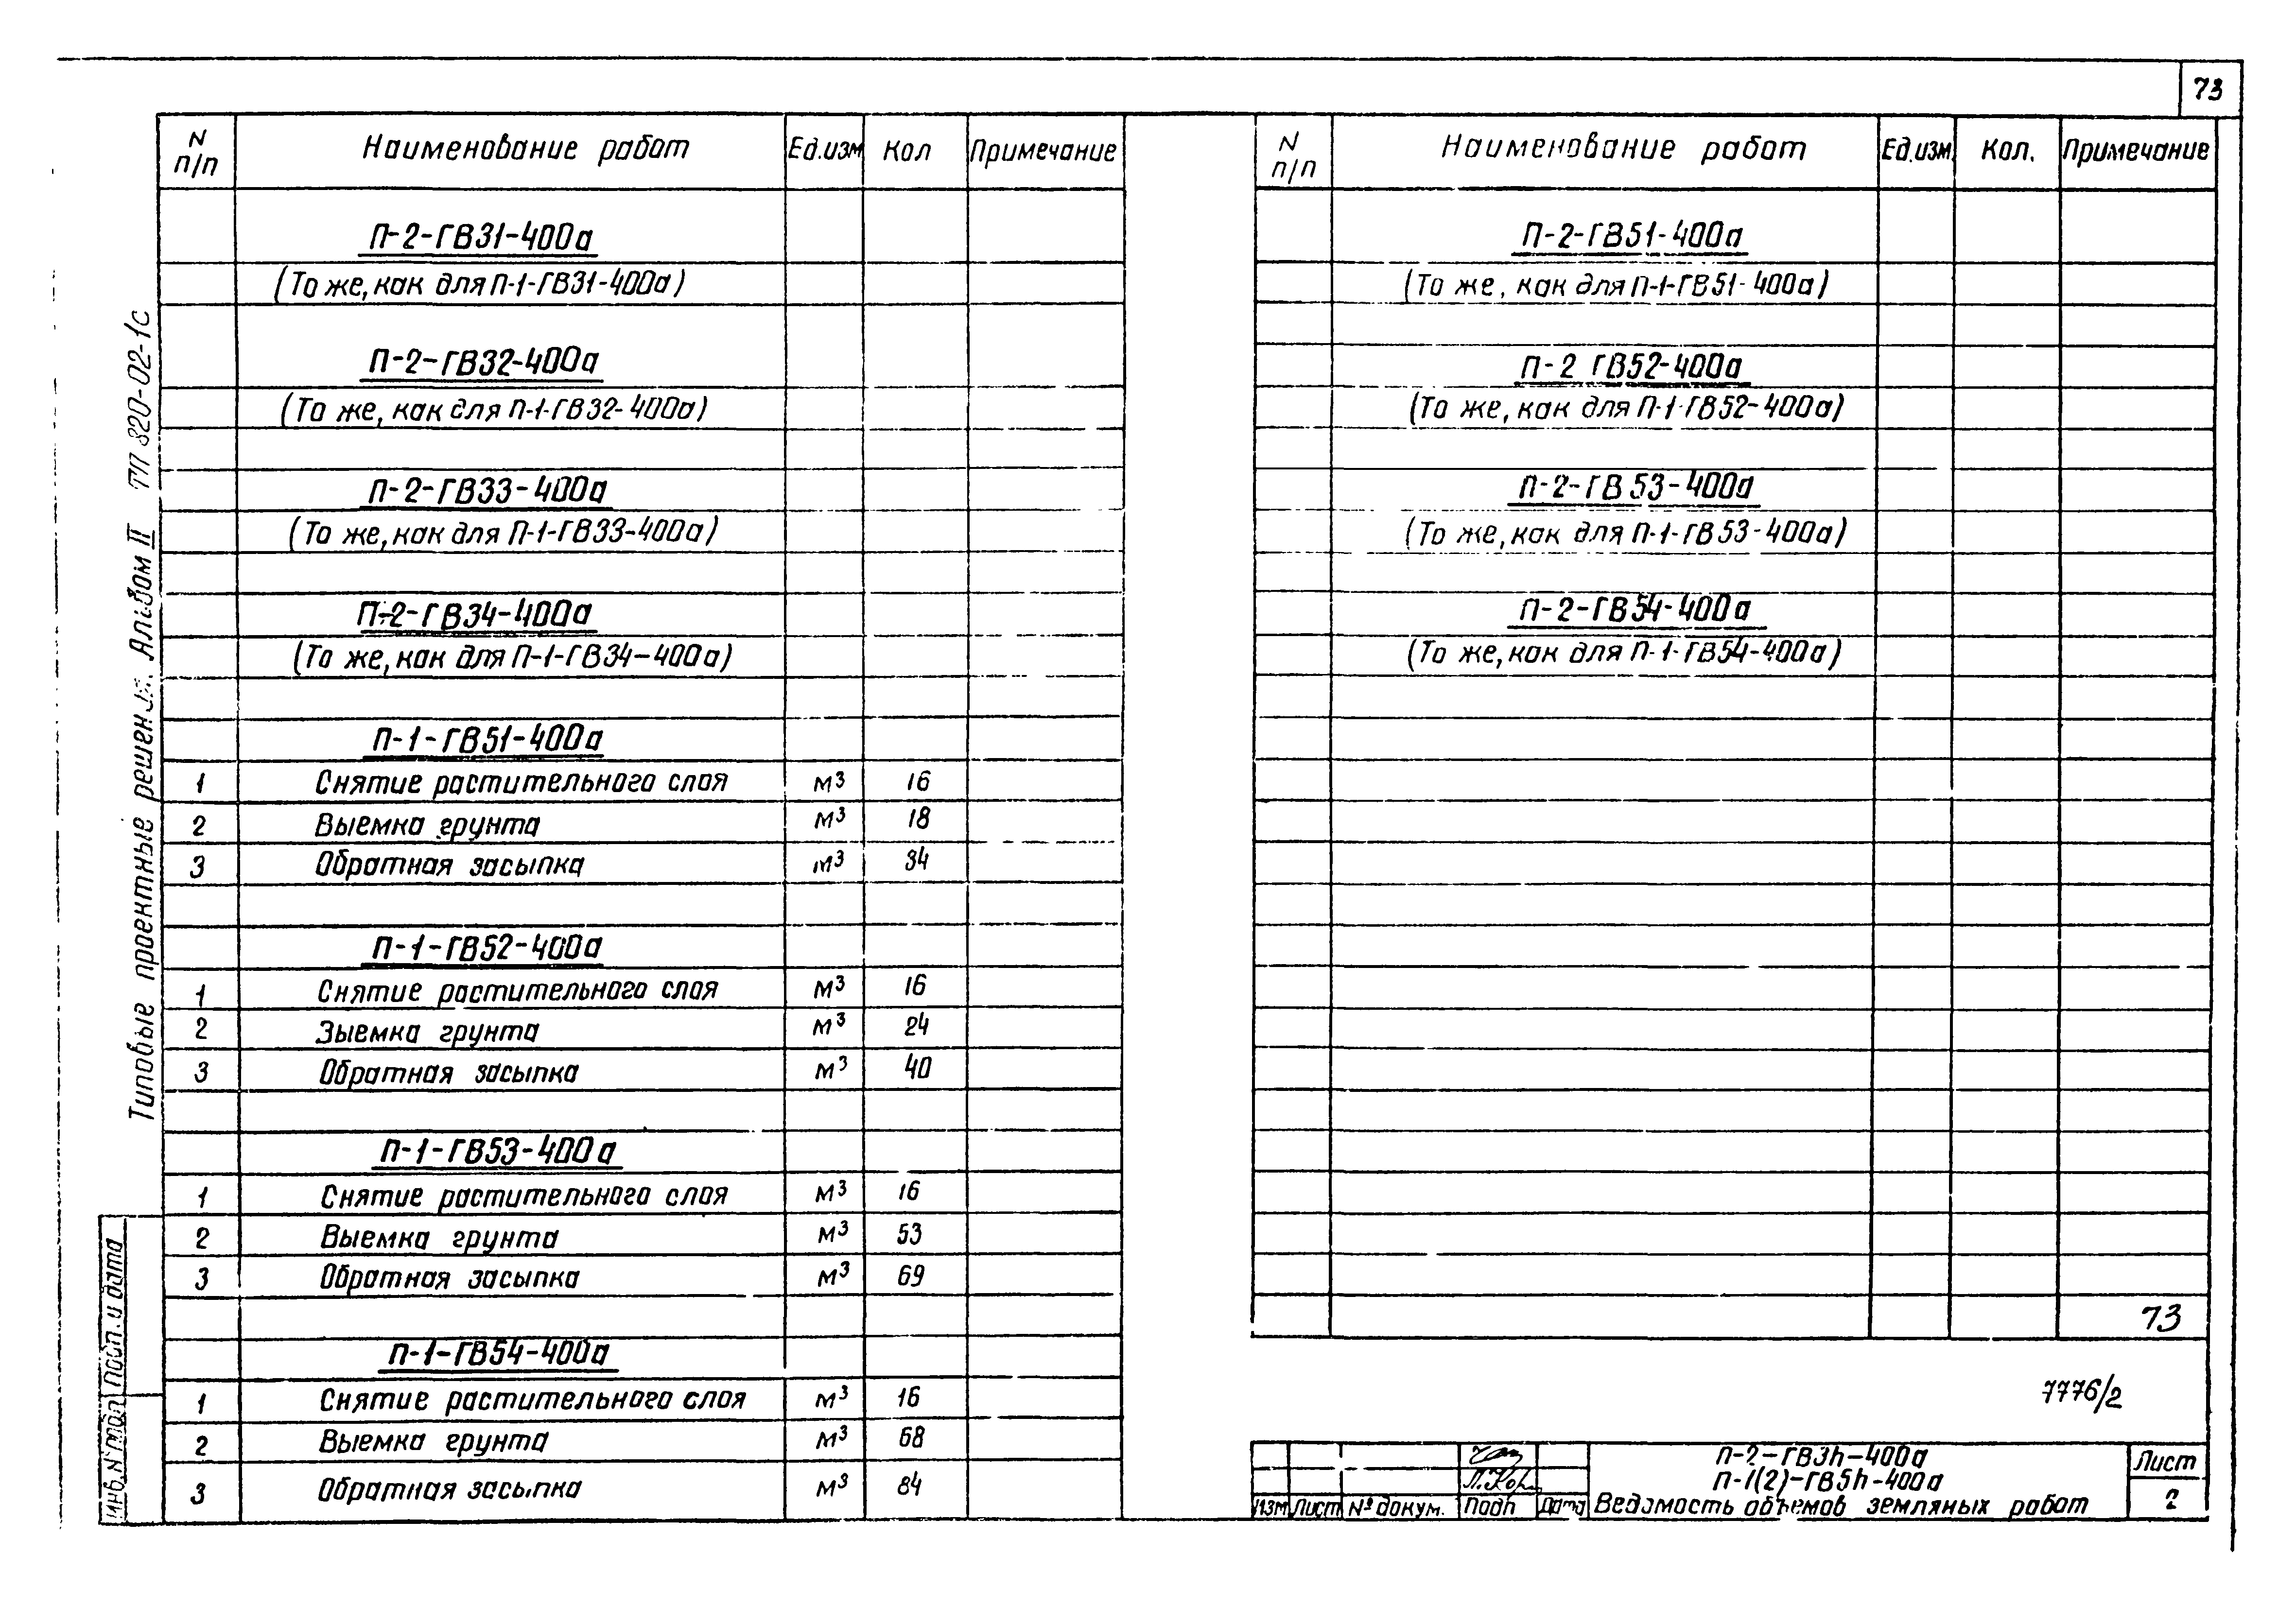 73
N п/п Наименование работ Ед.изм Кол Примечание
П-2-ГВ31-400а
(То же, как для П-1-ГВ31-400а)
П-2-ГВ32-400а
(То же, как для П-1-ГВ32-400а)
П-2-ГВ33-400а
(То же, как для П-1-ГВ33-400а)
П-2-ГВ34-400а
(То же, как для П-1-ГВ34-400а)
П-1-ГВ51-400а
1 Снятие растительного слоя м³ 16
2 Выемка грунта м³ 18
3 Обратная засыпка м³ 34
П-1-ГВ52-400а
1 Снятие растительного слоя м³ 16
2 Зыемка грунта м³ 24
3 Обратная засыпка м³ 40
П-1-ГВ53-400а
1 Снятие растительного слоя м³ 16
2 Выемка грунта м³ 53
3 Обратная засыпка м³ 69
П-1-ГВ54-400а
1 Снятие растительного слоя м³ 16
2 Выемка грунта м³ 68
3 Обратная засыпка м³ 84
N п/п Наименование работ Ед.изм Кол. Примечание
П-2-ГВ51-400а
(То же, как для П-1-ГВ51-400а)
П-2 ГВ52-400а
(То же, как для П-1-ГВ52-400а)
П-2-ГВ53-400а
(То же, как для П-1-ГВ53-400а)
П-2-ГВ54-400а
(То же, как для П-1-ГВ54-400а)
73
7776/2
П-2-ГВ3h-400а
П-1(2)-ГВ5h-400а
Ведомость объемов земляных работ
Лист
2
Изм Лист № докум. Подп Дата
Типовые проектные решения. Альбом II ТП 820-02-1с
Инв. № подл Подп. и дата